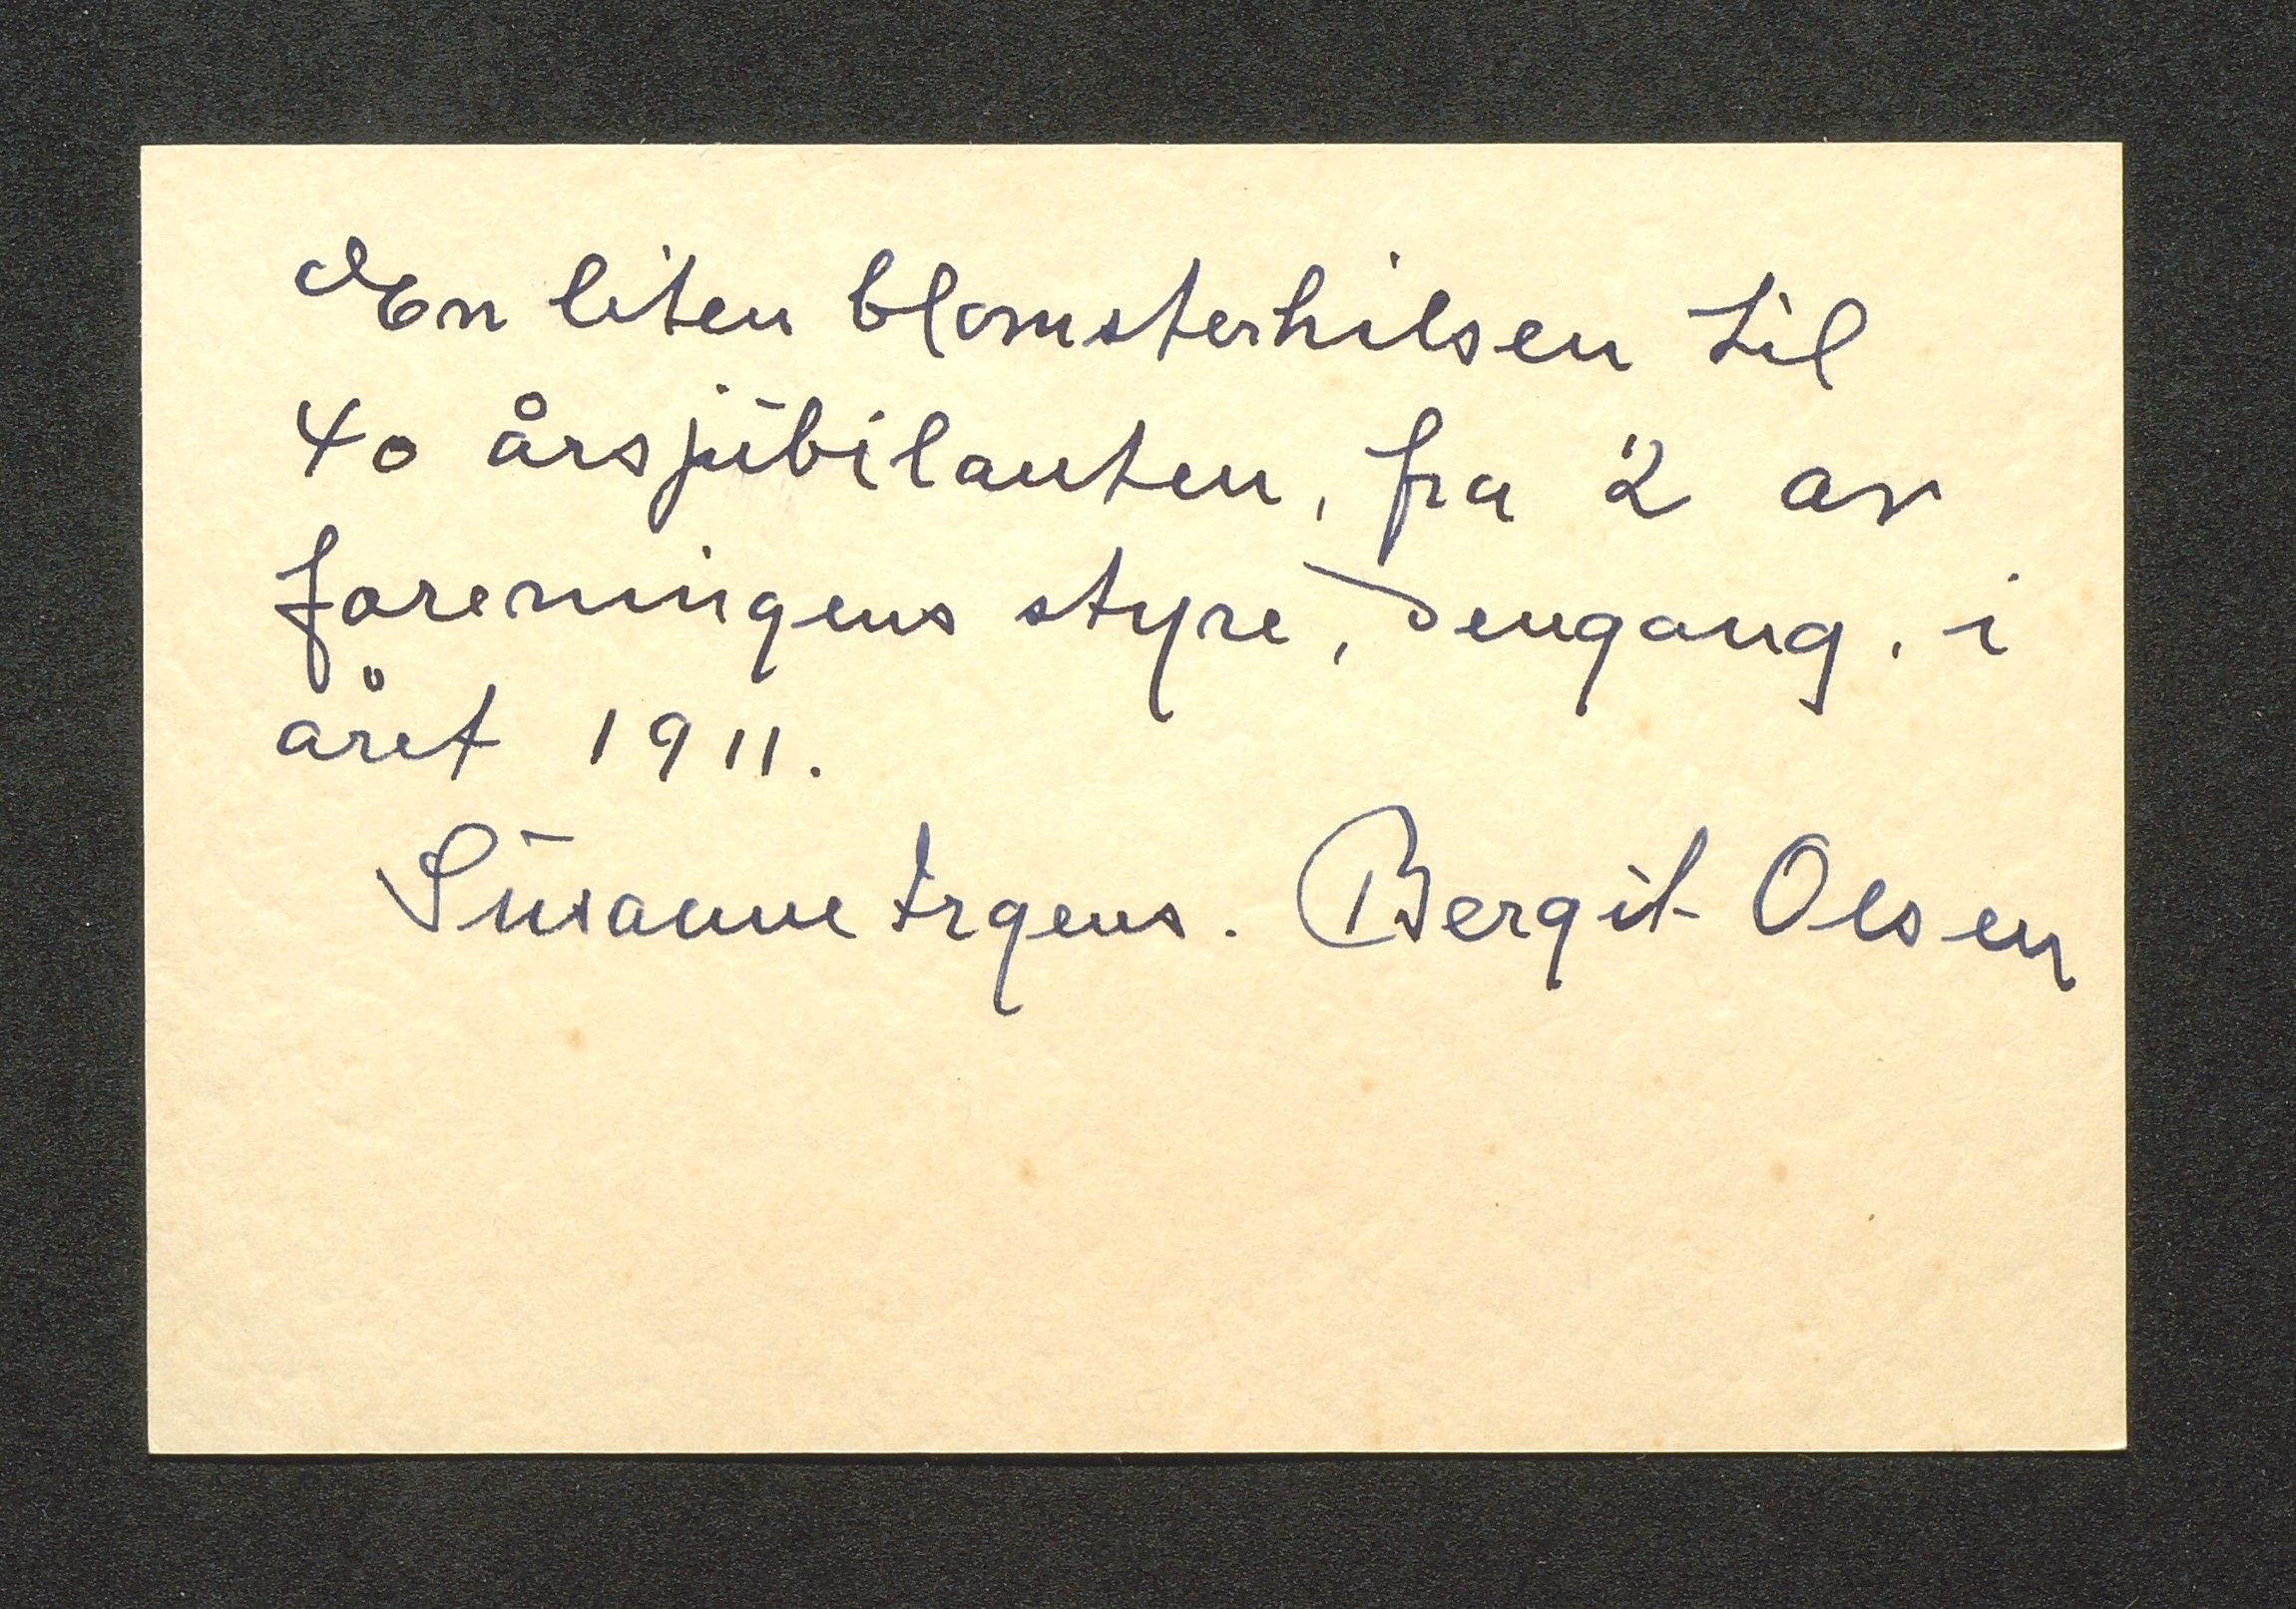 En liten blomsterhilsen til
40 årsjubilanten, fra 2 av
foreningens styre, dengang. i
året 1911.
Susanne Irgens. Bergit Olsen